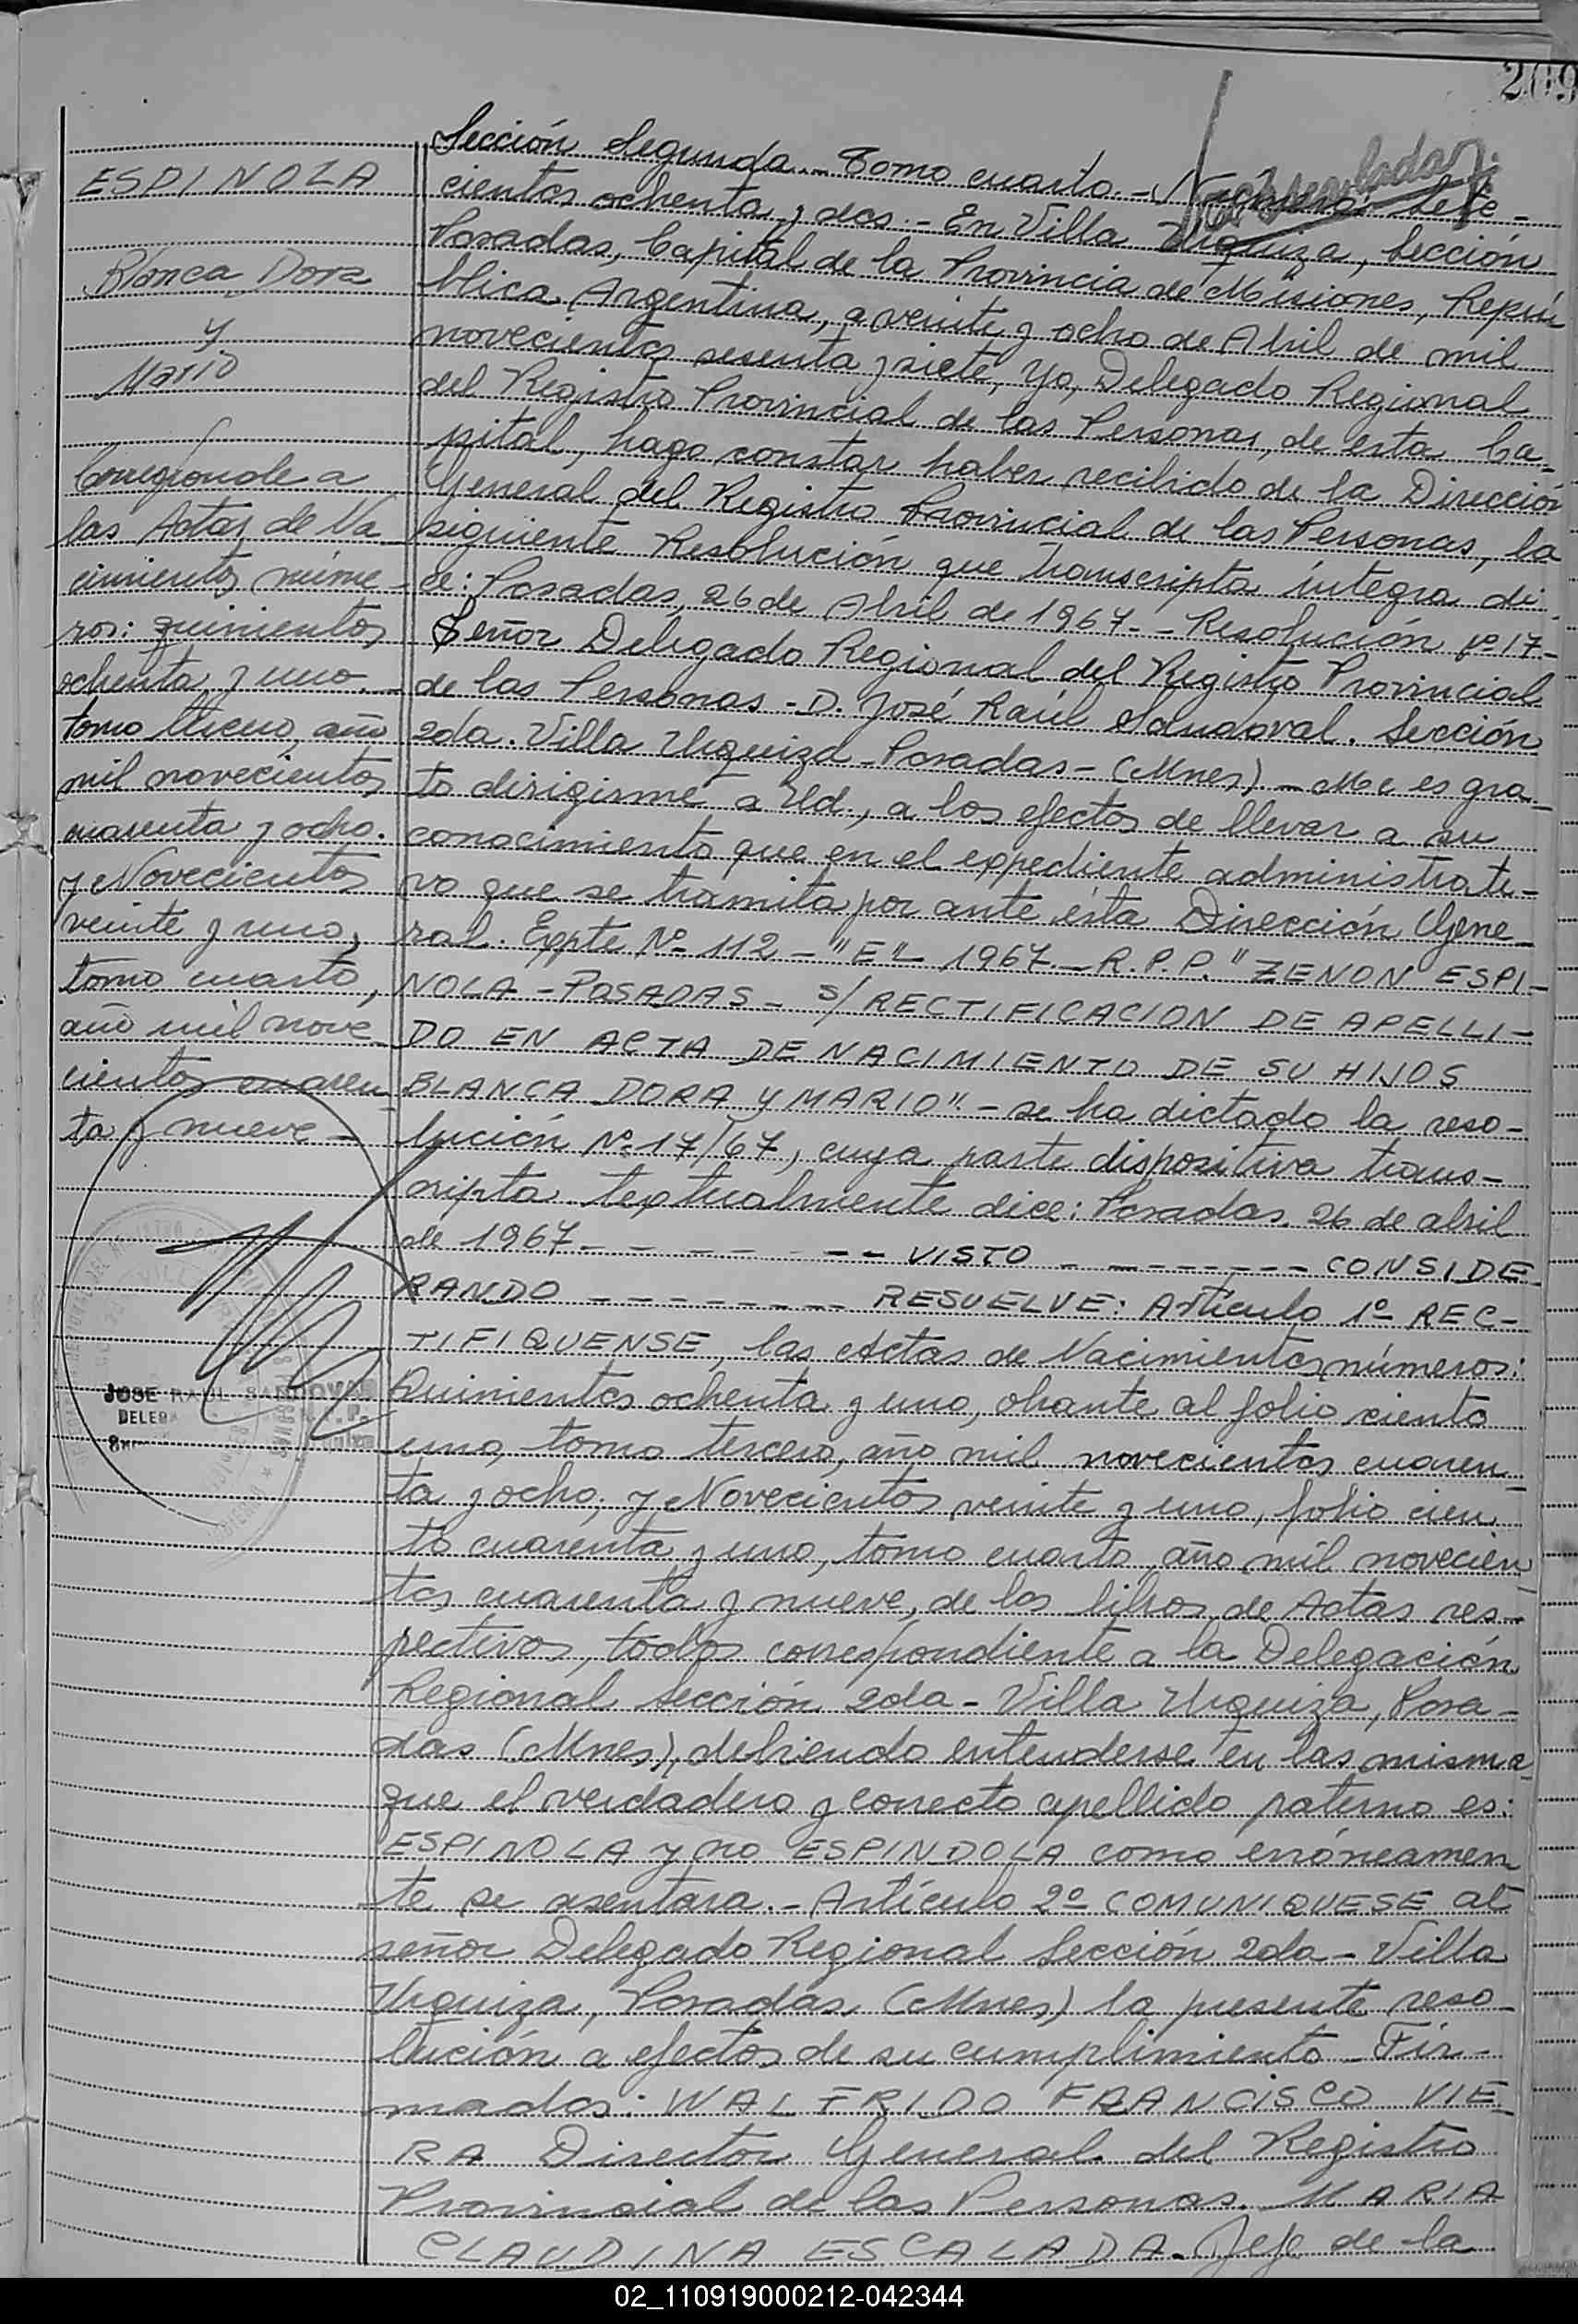 209
Sección Segunda.- Tomo cuarto.- Número: Sete-
cientos ochenta y dos.- En Villa Urquiza, Sección
Posadas, Capital de la Provincia de Misiones, Repú-
blica Argentina, a veinte y ocho de Abril de mil
novecientos sesenta y siete, Yo, Delegado Regional
del Registro Provincial de las Personas, de esta Ca-
pital, hago constar haber recibido de la Dirección
General del Registro Provincial de las Personas, la
siguiente Resolución que transcripta íntegra di-
ce: Posadas, 26 de Abril de 1967.- Resolución Nº 17-
Señor Delegado Regional del Registro Provincial
de las Personas - D. José Raúl Sandoval. Sección
2da. Villa Urquiza - Posadas - (Mnes) - Me es gra-
to dirigirme a Ud., a los efectos de llevar a su
conocimiento que en el expediente administrati-
vo que se tramita por ante ésta Dirección Gene-
ral. Expte Nº 112 - "E" - 1967 - R.P.P. "ZENON ESPI-
NOLA - POSADAS - s/ RECTIFICACION DE APELLI-
DO EN ACTA DE NACIMIENTO DE SU HIJOS
BLANCA DORA Y MARIO".- se ha dictado la reso-
lución Nº 17/67, cuya parte dispositiva trans-
cripta textualmente dice: Posadas, 26 de abril
de 1967 - - - - - - - VISTO - - - - - - - - CONSIDE-
RANDO - - - - - - - - RESUELVE: Artículo 1º REC-
TIFIQUENSE, las Actas de Nacimientos números:
Quinientos ochenta y uno, obrante al folio ciento
uno, tomo tercero, año mil novecientos cuaren-
ta y ocho, y Novecientos veinte y uno, folio cien-
to cuarenta y uno, tomo cuarto, año mil novecien-
tos cuarenta y nueve, de los libros de Actas res-
pectivos, todos correspondiente a la Delegación
Regional Sección 2da - Villa Urquiza, Posa-
das (Mnes), debiendo entenderse en las misma
que el verdadero y correcto apellido paterno es:
ESPINOLA y no ESPINDOLA como erróneamen-
te se asentara.- Artículo 2º COMUNIQUESE al
señor Delegado Regional Sección 2da - Villa
Urquiza, Posadas (Mnes) la presente reso-
lución a efectos de su cumplimiento - Fir-
mados: WALFRIDO FRANCISCO VIE-
RA Director General del Registro
Provincial de las Personas. MARIA
CLAUDINA ESCALADA. Jefe de la
ESPINOLA
Blanca Dora
y
Mario
Corresponde a
las Actas de Na
cimientos núme-
ros: quinientos
ochenta y uno.-
tomo tercero, año
mil novecientos
cuarenta y ocho.
y Novecientos
veinte y uno,
tomo cuarto,
año mil nove
cientos cuaren-
ta y nueve-
JOSE RAUL SANDOVAL
02_110919000212-042344